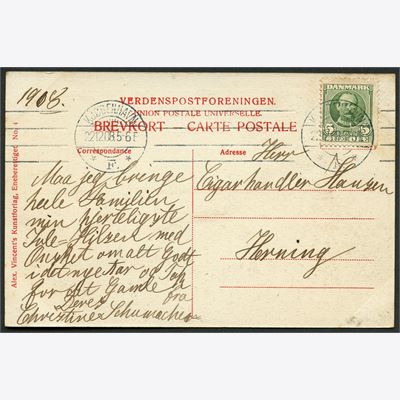 1908.
VERDENSPOSTFORENINGEN.
UNION POSTALE UNIVERSELLE.
BREVKORT - CARTE POSTALE
Correspondance
Adresse
KJØBENHAVN
22.12.08.5-6E
DANMARK
5
Alex. Vincent's Kunstforlag, Eneberettiget. No.
Maa jeg bringe
hele Familien
min hjerteligste
Jule-Hilsen med
Ønsket om alt Godt
i det nye Aar og Tak
for det Gamle
Deres
Christine Schumacher
Herr
Cigarhandler Hansen
Herning